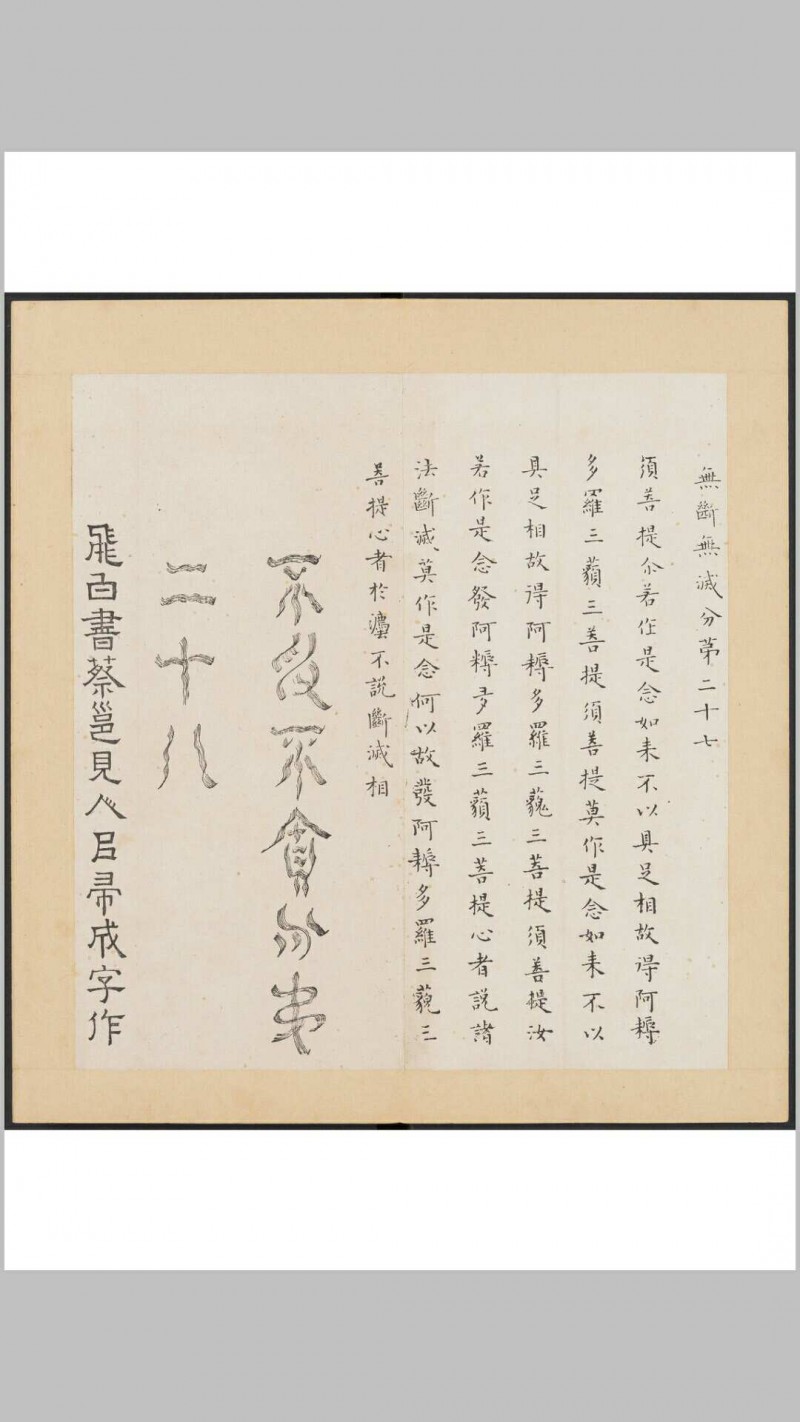 無斷無滅分第二十七
須菩提尒若作是念如来不以具足相故得阿耨
多羅三藐三菩提須菩提莫作是念如来不以
具足相故得阿耨多羅三藐三菩提須菩提汝
若作是念發阿耨多羅三藐三菩提心者說諸
法斷滅莫作是念何以故發阿耨多羅三藐三
菩提心者於灋不說斷滅相
不受不貪分第
二十八
飛白書蔡邕見人以帚成字作